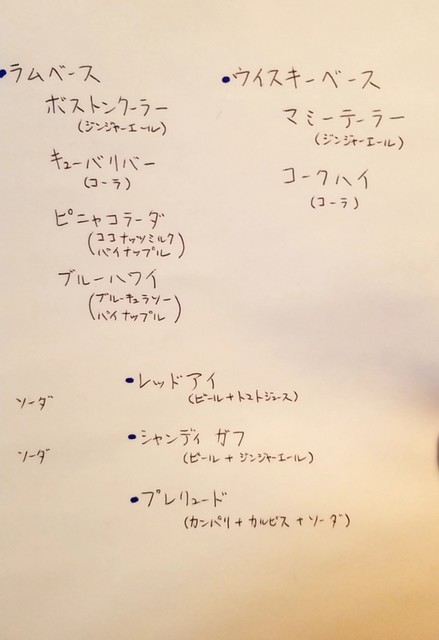 •ラムベース
ボストンクーラー
(ジンジャーエール)
キューバリバー
(コーラ)
ピニャコラーダ
(ココナッツミルク
パイナップル)
ブルーハワイ
(ブルーキュラソー
パイナップル)
•ウイスキーベース
マミーテーラー
(ジンジャーエール)
コークハイ
(コーラ)
•レッドアイ
(ビール+トマトジュース)
ソーダ
•シャンディ ガフ
(ビール+ジンジャーエール)
ソーダ
•プレリュード
(カンパリ+カルピス+ソーダ)